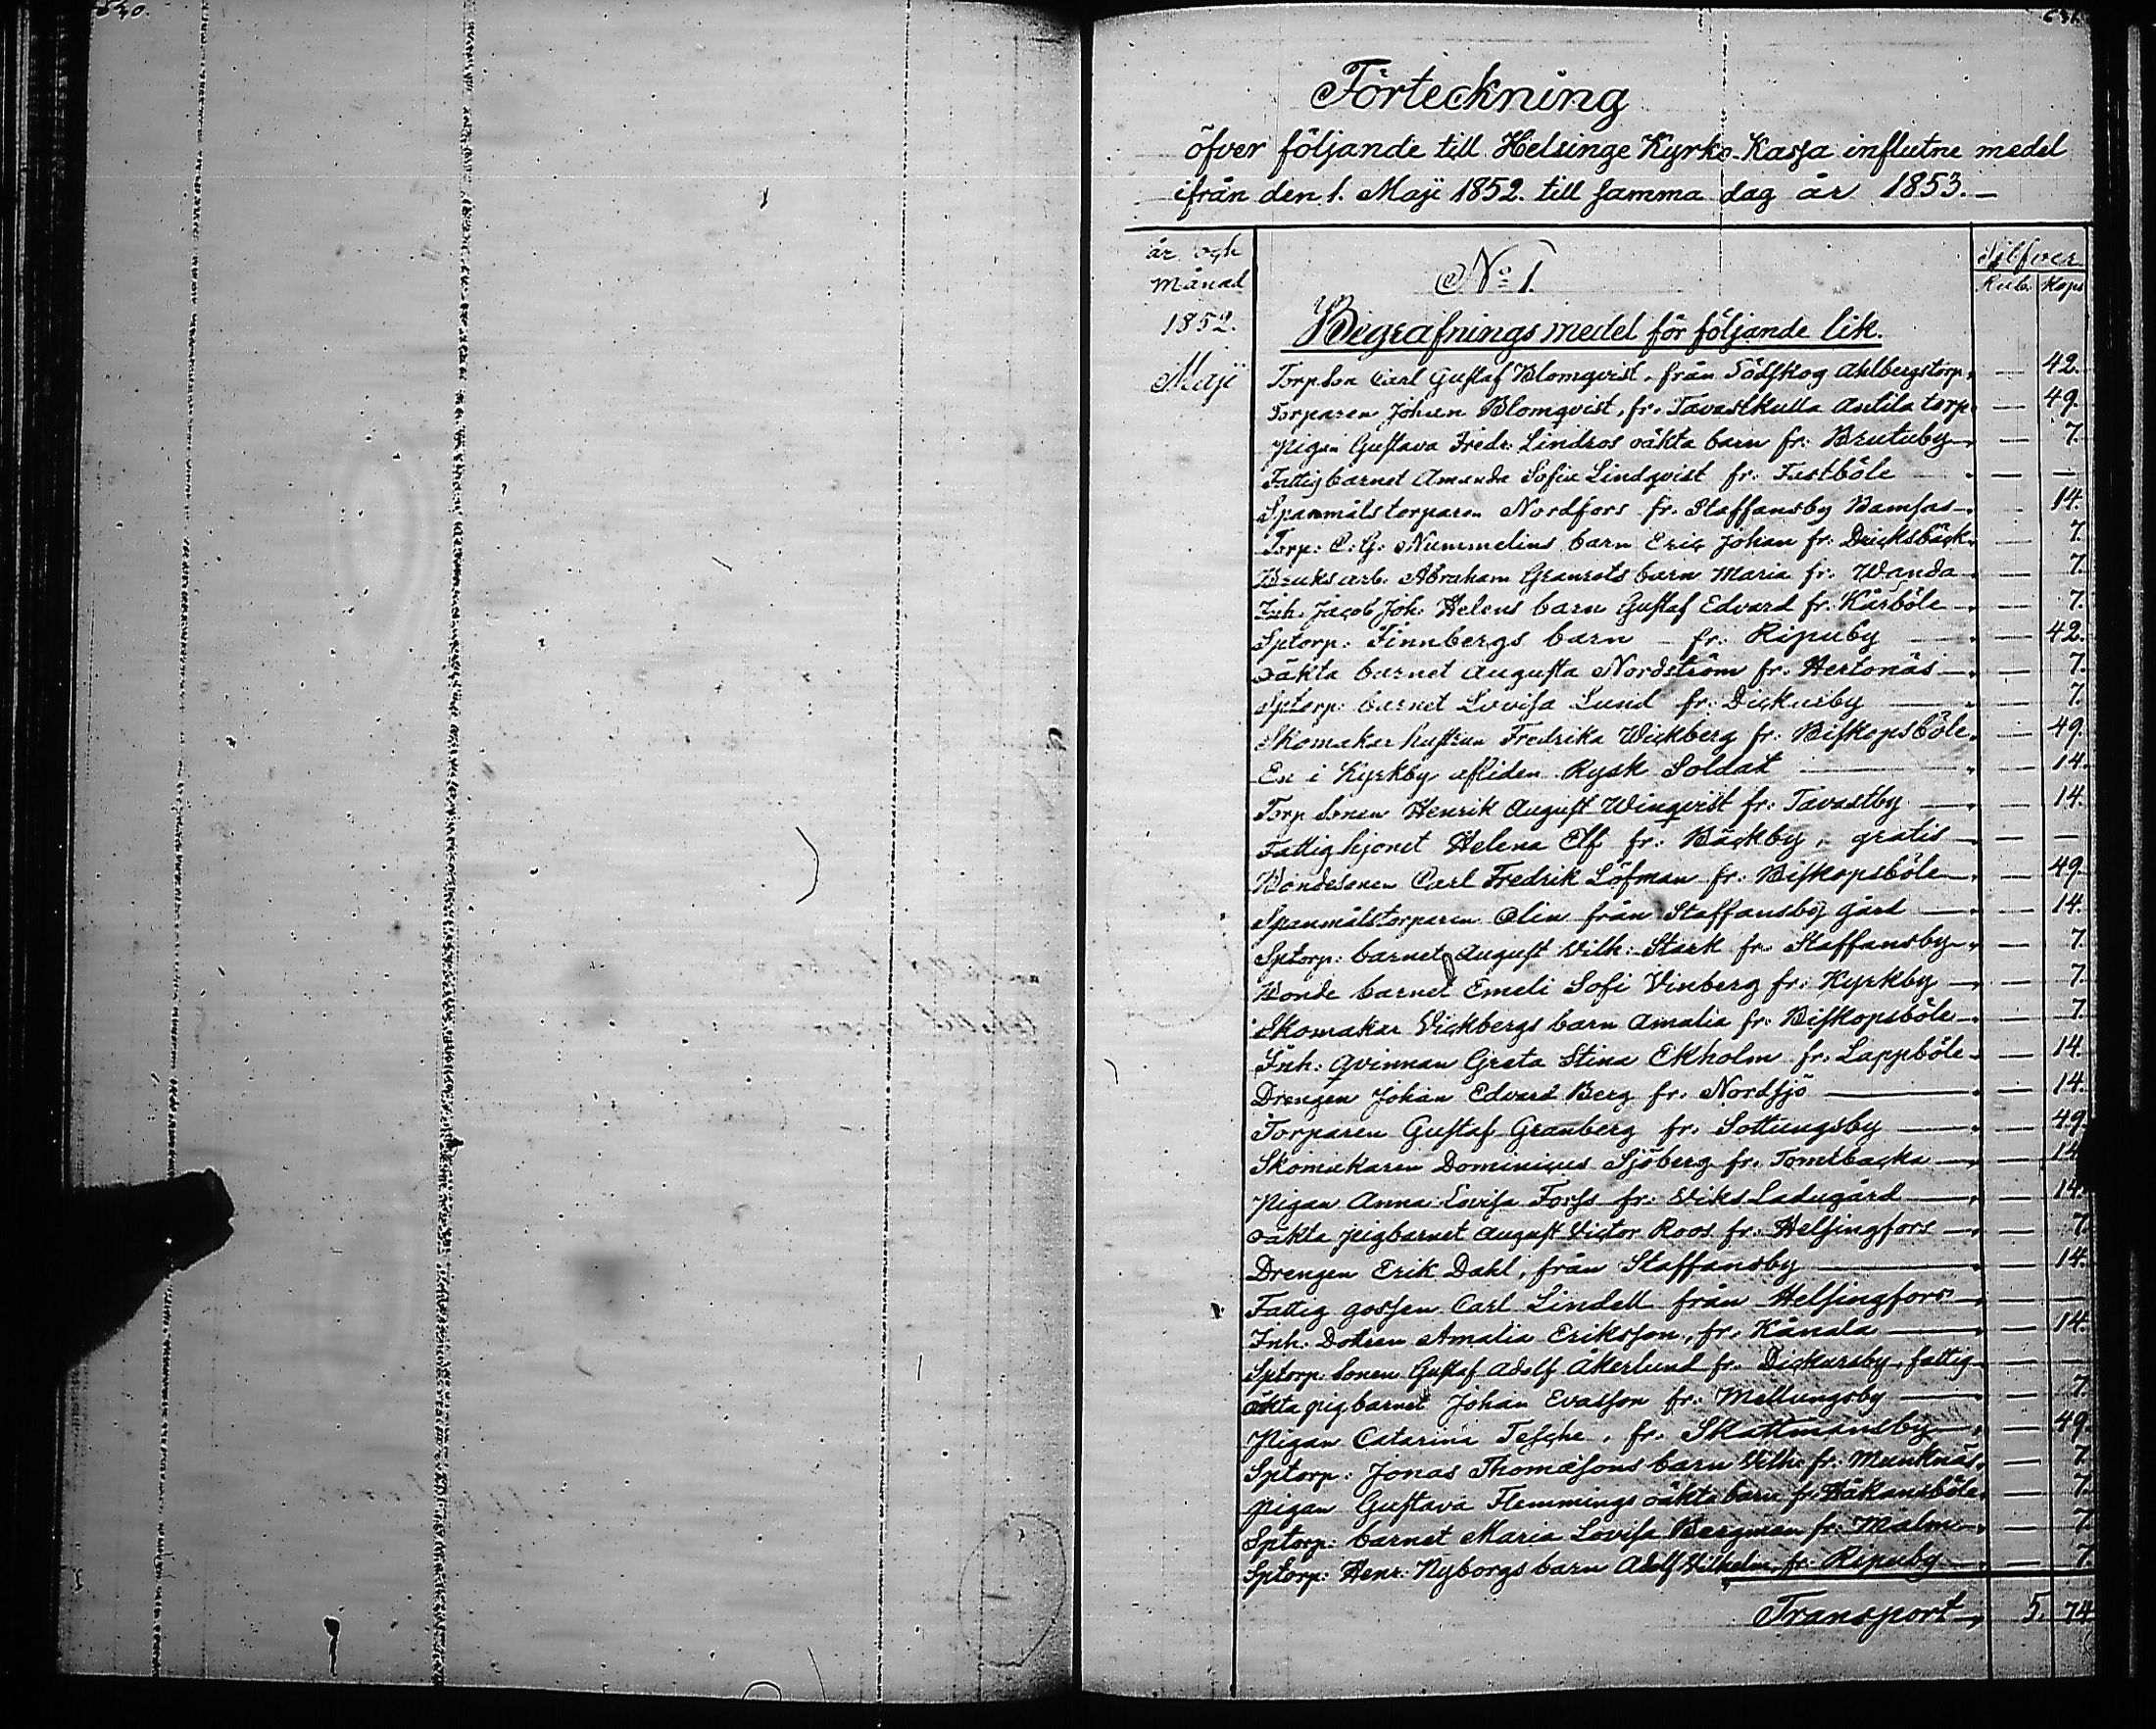 Förteckning
öfver följande till Helsinge Kyrko-Kassa influtne medel
ifrån den 1. Maji 1852. till samma dag år 1853.—
år och Silfver
månad No 1. Rub. Kop
1852. Begrafnings medel för följande lik.
Maji Torpson Carl Gustaf Blomqvist, från Ahlbergstorp, — 42.
Torparen Johan Blomqvist, fr. Tavastkulla Antila torp — 49.
Pigan Gustava Fredr: Lindros oäkta barn fr: Brutuby — 7.
Fattigbarnet Amanda Sofia Lindqvist fr: Fastböle — —
Spanmålstorparen Nordfors fr. Staffansby — 14.
Torp: C: G: Nummelins barn Eric Johan fr: Dicksbäck — 7.
Bruksarb. Abraham Granrots barn Maria fr. Wanda — 7.
Inh: Jacob Joh: Helens barn Gustaf Edvard fr. Kårböle — 7.
Sptorp: Finnbergs barn — fr: Ripuby — 42.
oäkta barnet Augusta Nordström fr. Hertonäs — 7.
Sptorp: barnet Lovisa Lund fr: Dickursby — 7.
Skomakar hustrun Fredrika Wickberg fr: Biskopsböle — 49.
En i Kyrkby afliden Rysk Soldat — 14.
Torp Sonen Henrik August Winqvist fr: Tavastby — 14.
Fattighjonet Helena Elf fr: Bäckby, gratis — —
Bondesonen Carl Fredrik Löfman fr: Biskopsböle — 49.
Spanmålstorparen Olin från Staffansby gård — 14.
Sptorp: barnet August Vilh: Stark fr: Staffansby — 7.
Bonde barnet Emeli Sofi Vinberg fr: Kyrkby — 7.
Skomakar Vickbergs barn Amalia fr: Biskopsböle — 7.
Inh: qvinnan Greta Stina Ekholm fr: Lappböle — 14.
Drengen Johan Edvard Berg fr. Nordsjö — 14.
Torparen Gustaf Granberg fr. Sottungsby — 49.
Skomakaren Dominicus Sjöberg fr. Tomtbacka — 14
Pigan Anna Lovisa Forss fr: Viks Ladugård — 14.
oäkta pigbarnet August Victor Roos fr: Helsingfors — 7.
Drengen Erik Dahl, från Staffansby — 14.
Fattig gossen Carl Lindell från Helsingfors — —
Inh: Dottren Amalia Eriksson, fr. Kånala — 14.
Sptorp. Sonen Gustaf Adolf Åkerlund fr. Dickursby, fattig — —
oäkta pigbarnet Johan Evasson fr: Mellungsby — 7
Pigan Catarina Tesche, fr. Skattmansby — 49.
Sptorp: Jonas Thomassons barn Vilh: fr: Munknäs — 7.
pigan Gustava Flemmings oäkta barn fr. Håkansböle — 7.
Sptorp: barnet Maria Lovisa Bergman fr: Malm — 7.
Sptorp: Henr: Nyborgs barn Adolf Vilhelm fr: Ripuby — 7.
Transport, 5. 74